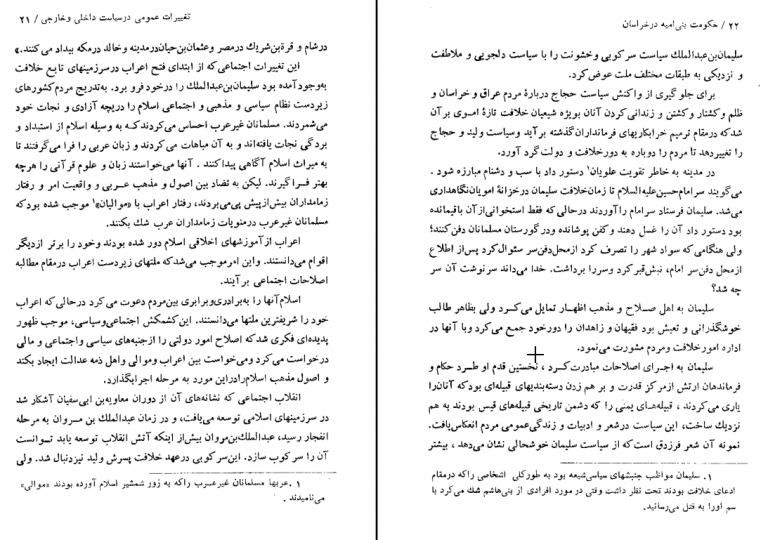 تغییرات عمومی در سیاست داخلی و خارجی / ۲۱
در شام و قرة بن شریك در مصر و عثمان بن حیان در مدینه و خالد در مکه بیداد می کنند.»
این تغییرات اجتماعی که از ابتدای فتح اعراب در سرزمینهای تابع خلافت
به وجود آمده بود سلیمان بن عبدالملك را در خود فرو برد. به تدریج مردم کشورهای
زیردست نظام سیاسی و مذهبی و اجتماعی اسلام را دریچه آزادی و نجات خود
می شمردند. مسلمانان غیر عرب احساس می کردند که به وسیله اسلام از استبداد و
بردگی نجات یافته اند و به آن مباهات می کردند و زبان عربی را فرا می گرفتند تا
به میراث اسلام آگاهی پیدا کنند . آنها می خواستند زبان و علوم قرآنی را هرچه
بهتر فرا گیرند. لیکن به تضاد بین اصول و مذهب عربی و واقعیت امر و رفتار
زمامداران بیش از پیش پی می بردند، رفتار اعراب با «موالیان»۱ موجب شده بود که
مسلمانان غیر عرب در منویات زمامداران عرب شك بکنند.
اعراب از آموزشهای اخلاقی اسلام دور شده بودند و خود را برتر از دیگر
اقوام می دانستند. و این امر موجب می شد که ملتهای زیردست اعراب در مقام مطالبه
اصلاحات اجتماعی بر آیند.
اسلام آنها را به برادری و برابری بین مردم دعوت می کرد در حالی که اعراب
خود را شریفترین ملتها می دانستند. این کشمکش اجتماعی و سیاسی، موجب ظهور
پدیده ای فکری شد که اصلاح امور دولتی را از جنبه های سیاسی و اجتماعی و مالی
درخواست می کرد و می خواست بین اعراب و موالی و اهل ذمه عدالت ایجاد بکند
و اصول مذهب اسلام را در این مورد به مرحله اجرا بگذارد.
انقلاب اجتماعی که نشانه های آن از دوران معاویه بن ابی سفیان آشکار شد
در سرزمینهای اسلامی توسعه می یافت، و در زمان عبدالملك بن مروان به مرحله
انفجار رسید، عبدالملك بن مروان بیش از اینکه آتش انقلاب توسعه یابد توانست
آن را سرکوب سازد. این سرکوبی در عهد خلافت پسرش ولید نیز دنبال شد. ولی
۱ . عربها مسلمانان غیر عرب را که به زور شمشیر اسلام آورده بودند «موالی»
می نامیدند .
۲۲ / حکومت بنی امیه در خراسان
سلیمان بن عبدالملك سیاست سرکوبی و خشونت را با سیاست دلجویی و ملاطفت
و نزدیکی به طبقات مختلف ملت عوض کرد.
برای جلوگیری از واکنش سیاست حجاج دربارهٔ مردم عراق و خراسان و
ظلم و کشتار و کشتن و زندانی کردن آنان بویژه شیعیان خلافت تازهٔ اموی بر آن
شد که در مقام ترمیم خرابکاریهای فرمانداران گذشته بر آید و سیاست ولید و حجاج
را تغییر دهد تا مردم را دوباره به دور خلافت و دولت گرد آورد.
در مدینه به خاطر تقویت علویان۱ دستور داد با سب و دشنام مبارزه شود .
می گویند سر امام حسین علیه السلام تا زمان خلافت سلیمان در خزانهٔ امویان نگاهداری
می شد. سلیمان فرستاد سر امام را آوردند در حالی که فقط استخوانی از آن باقیمانده
بود دستور داد آن را غسل دهند و کفن پوشانده و در گورستان مسلمانان دفن کنند؛
ولی هنگامی که سواد شهر را تصرف کرد از محل دفن سر سئوال کرد پس از اطلاع
از محل دفن سر امام، نبش قبر کرد و سر را برداشت. خدا می داند سرنوشت آن سر
چه شد؟
سلیمان به اهل صلاح و مذهب اظهار تمایل می کرد ولی بظاهر طالب
خوشگذرانی و تعیش بود فقیهان و زاهدان را دور خود جمع می کرد و با آنها در
اداره امور خلافت و مردم مشورت می نمود.
سلیمان به اجرای اصلاحات مبادرت کرد ، نخستین قدم او طرد حکام و
فرماندهان ارتش از مرکز قدرت و بر هم زدن دسته بندیهای قبیله ای بود که آنان را
یاری می کردند ، قبیله های یمنی را که دشمن تاریخی قبیله های قیس بودند به هم
نزدیك ساخت، این سیاست در شعر و ادبیات و زندگی عمومی مردم انعکاس یافت.
نمونه آن شعر فرزدق است که از سیاست سلیمان خوشحالی نشان می دهد ، بیشتر
۱ . سلیمان مواظب جنبشهای سیاسی شیعه بود به طور کلی اشخاصی را که در مقام
ادعای خلافت بودند تحت نظر داشت وقتی در مورد افرادی از بنی هاشم شك می کرد با
سم او را به قتل می رسانید.